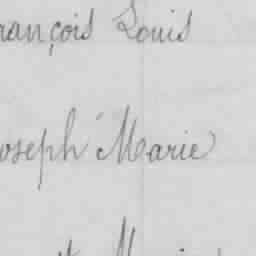 rançois Louis
oseph Marie